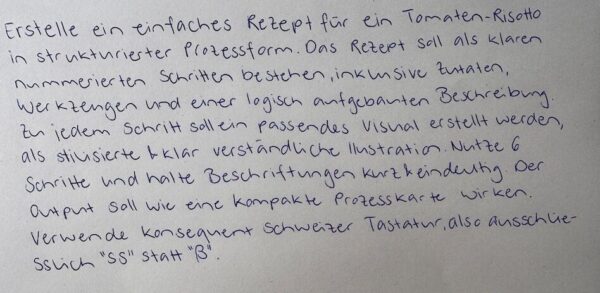 Erstelle ein einfaches Rezept für ein Tomaten-Risotto
in strukturierter Prozessform. Das Rezept soll als klaren
nummerierten Schritten bestehen, inklusive Zutaten,
Werkzeugen und einer logisch aufgebauten Beschreibung.
Zu jedem Schritt soll ein passendes Visual erstellt werden,
als stilisierte & klar verständliche Ilustration. Nutze 6
Schritte und halte Beschriftungen kurz & eindeutig. Der
Output soll wie eine kompakte Prozesskarte wirken.
Verwende konsequent schweizer Tastatur, also ausschlie-
sslich "ss" statt "ß".